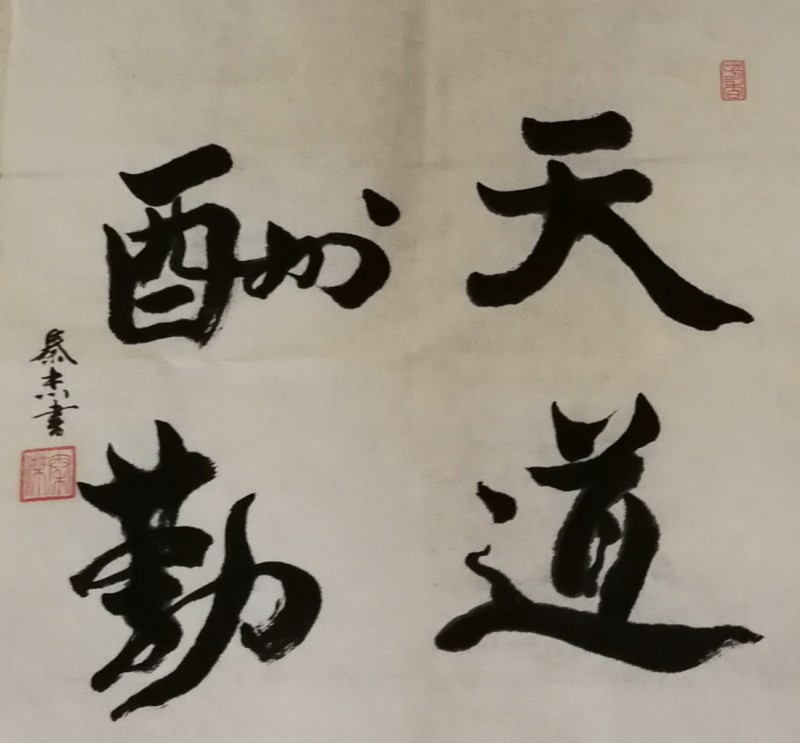 天道
酬勤
秦杰書